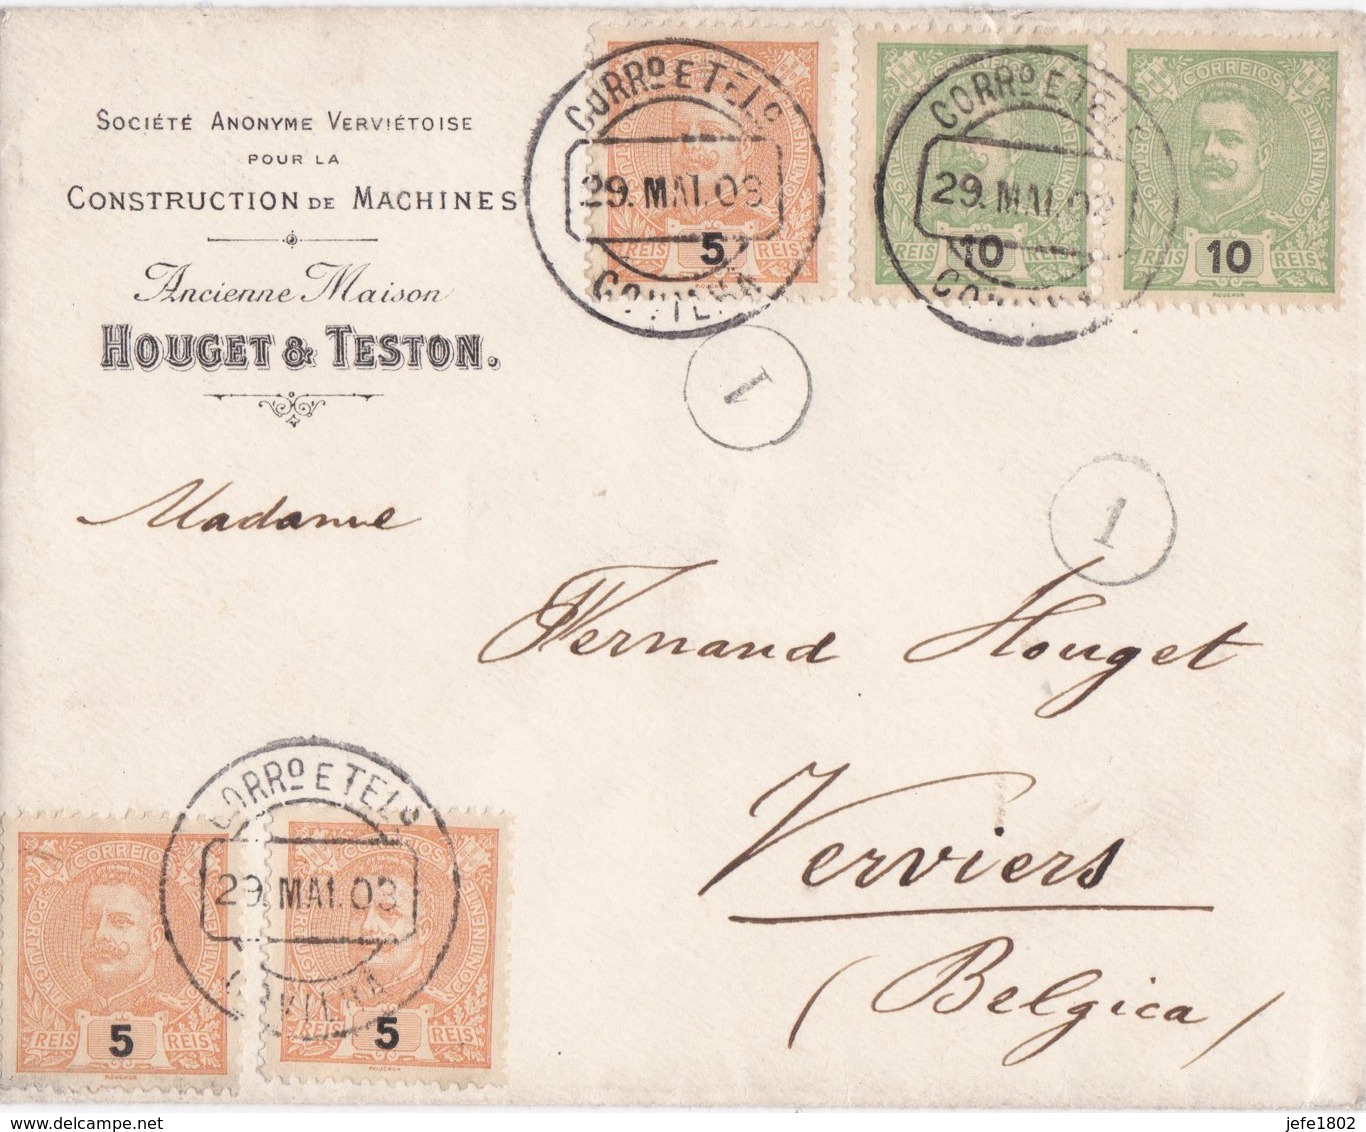 SOCIÉTÉ ANONYME VERVIÉTOISE
POUR LA
CONSTRUCTION DE MACHINES
Ancienne Maison
HOUGET & TESTON.
CORRO E TELO
29. MAI. 03
COVILHA
5
REIS
MOUCHON
CORREIOS
PORTUGAL
CONTINENTE
CORRO E TELO
29. MAI. 03
COVILHA
REIS 10 REIS
REIS 10 REIS
MOUCHON
1
1
Madame
Fernand Houget
Verviers
(Belgica)
CORRO E TELO
29. MAI. 03
COVILHA
CORREIOS
PORTUGAL
CONTINENTE
REIS 5 REIS
MOUCHON
CORREIOS
CONTINENTE
REIS 5 REIS
MOUCHON
jefe1802